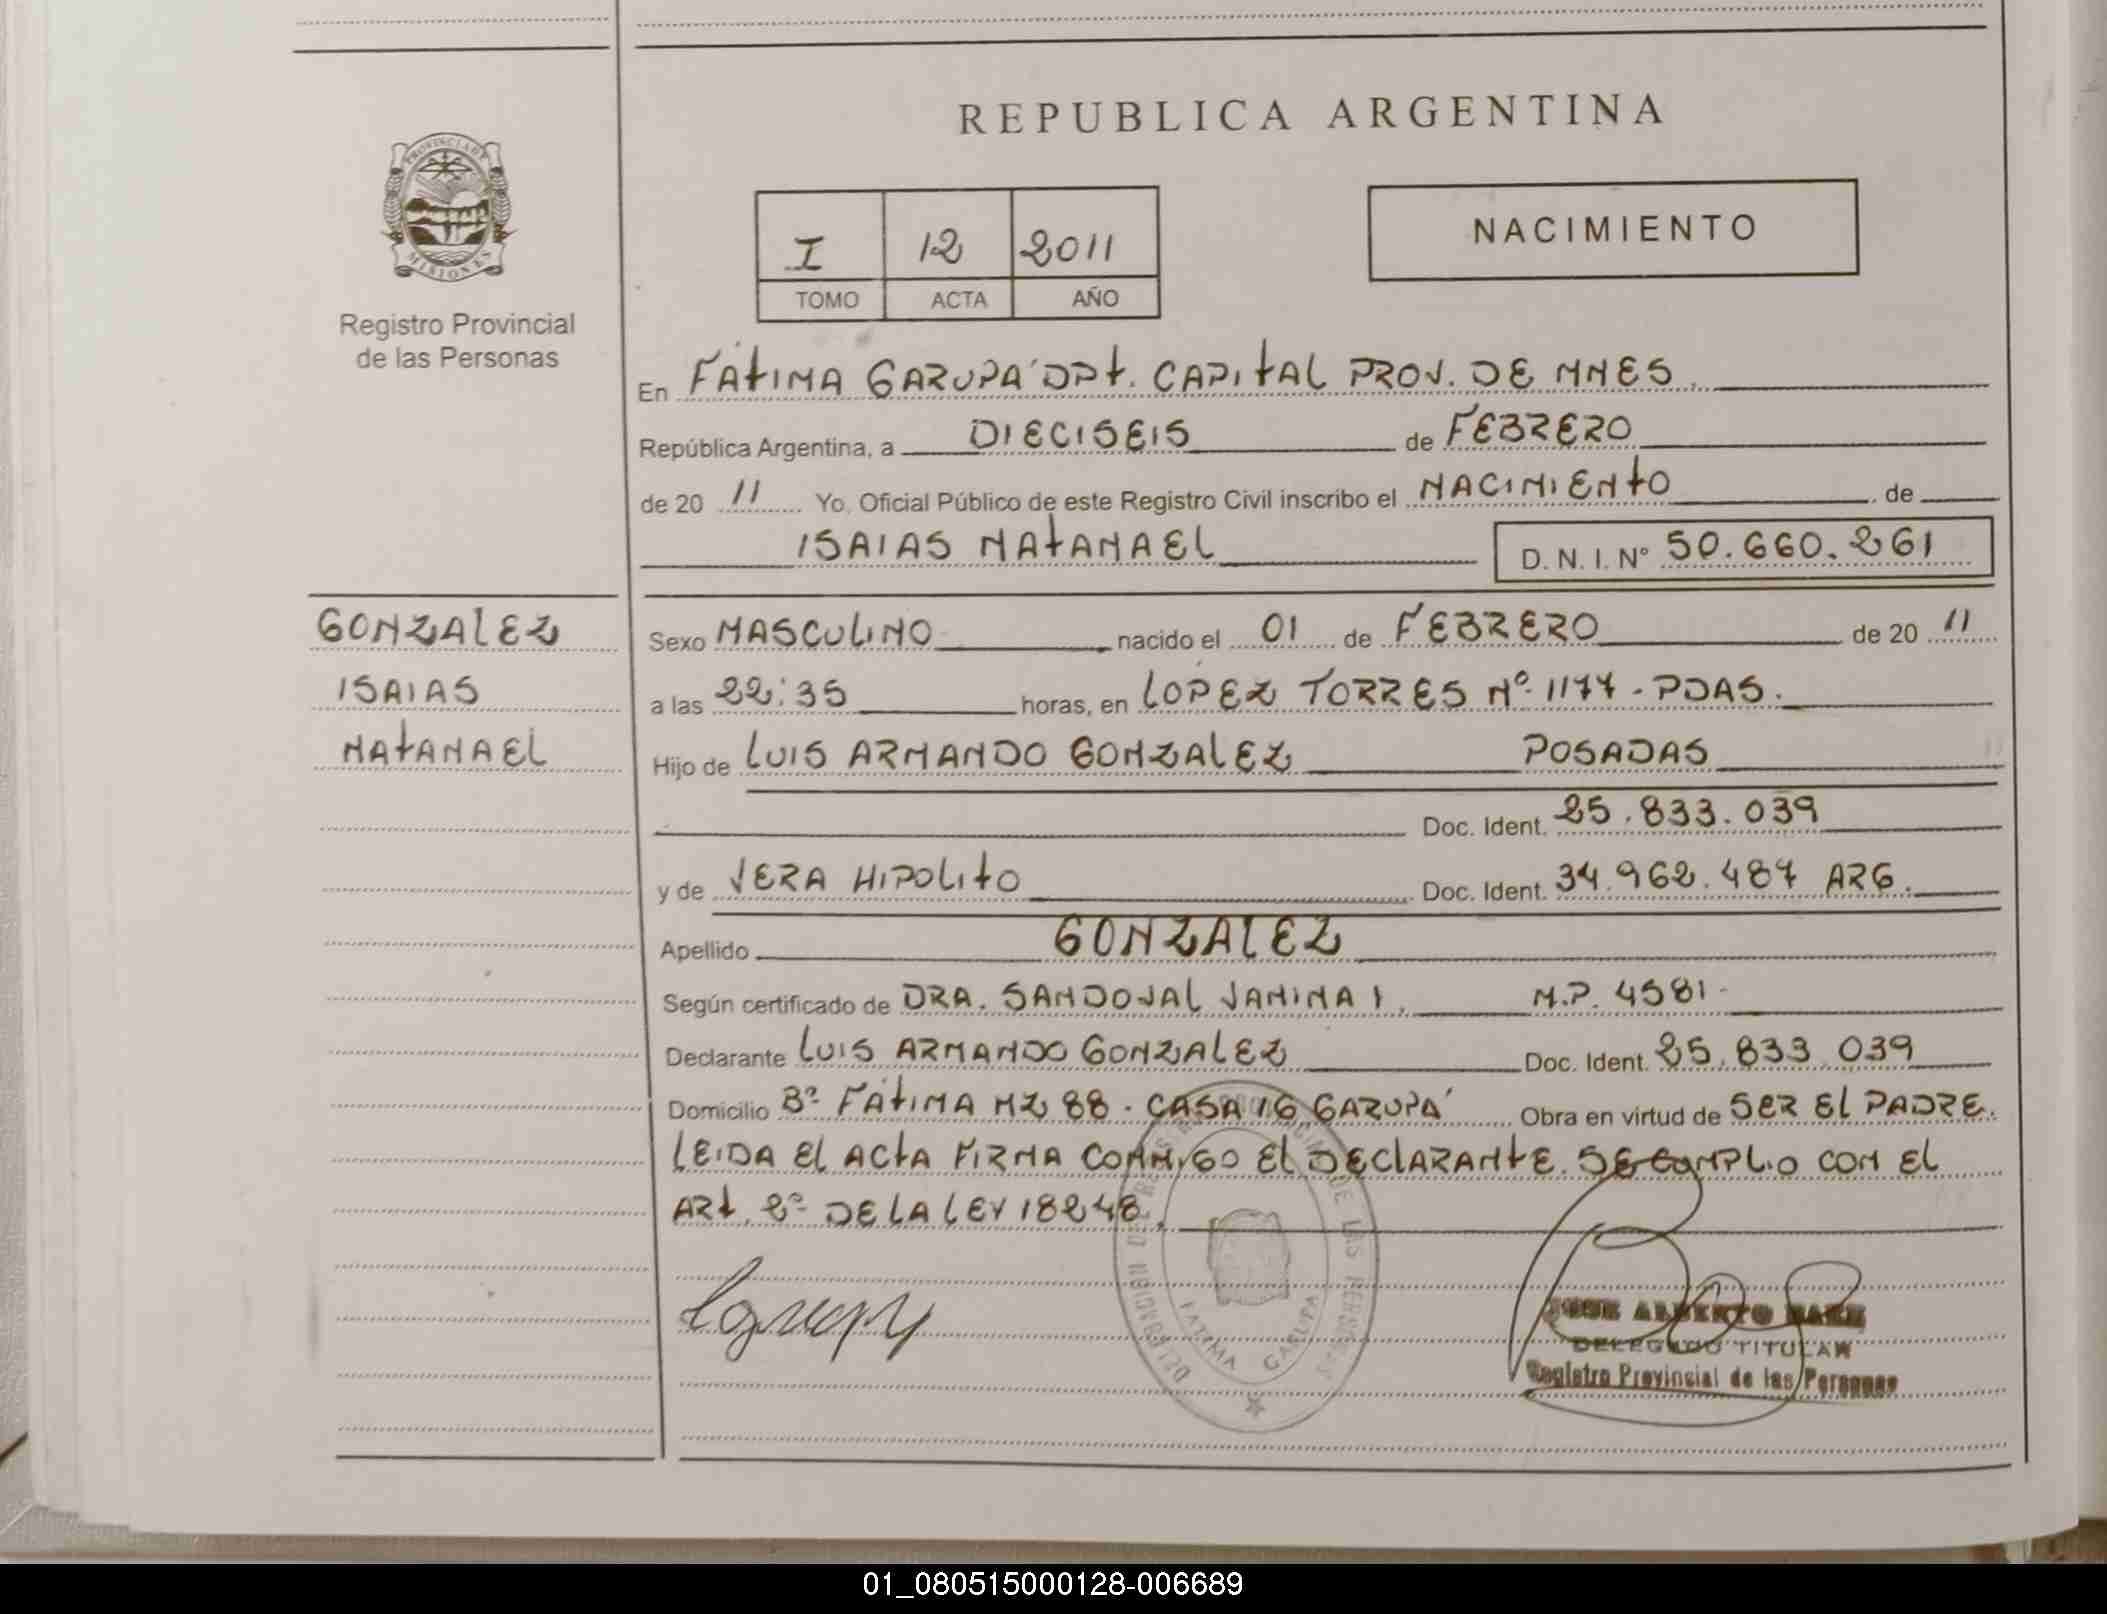 REPUBLICA ARGENTINA
PROVINCIA DE
MISIONES
Registro Provincial
de las Personas
I 12 2011
TOMO ACTA AÑO
NACIMIENTO
En FÁTIMA GARUPÁ DPT. CAPITAL PROV. DE MNES
República Argentina, a DIECISEIS de FEBRERO
de 20 11 Yo, Oficial Público de este Registro Civil inscribo el NACIMIENTO de
ISAIAS NATANAEL D. N. I. N° 50.660.261
GONZALEZ
ISAIAS
NATANAEL
Sexo MASCULINO nacido el 01 de FEBRERO de 20 11
a las 22:35 horas, en LOPEZ TORRES Nº 1177 - PDAS.
Hijo de LUIS ARMANDO GONZALEZ POSADAS
Doc. Ident. 25.833.039
y de VERA HIPOLITO Doc. Ident. 34.962.487 ARG.
Apellido GONZALEZ
Según certificado de DRA. SANDOVAL VANINA I. M.P. 4581-
Declarante LUIS ARMANDO GONZALEZ Doc. Ident. 25.833.039
Domicilio Bº FÁTIMA MZ 88 - CASA 16 GARUPÁ Obra en virtud de SER EL PADRE.
LEIDA EL ACTA FIRMA CONMIGO EL DECLARANTE. SE CUMPLIO CON EL
ART. 2º DE LA LEY 18248.
DELEGACION DEL REGISTRO PROVINCIAL DE LAS PERSONAS
FATIMA GARUPA
JOSE ALBERTO BAEZ
DELEGADO TITULAR
Registro Provincial de las Personas
01_080515000128-006689